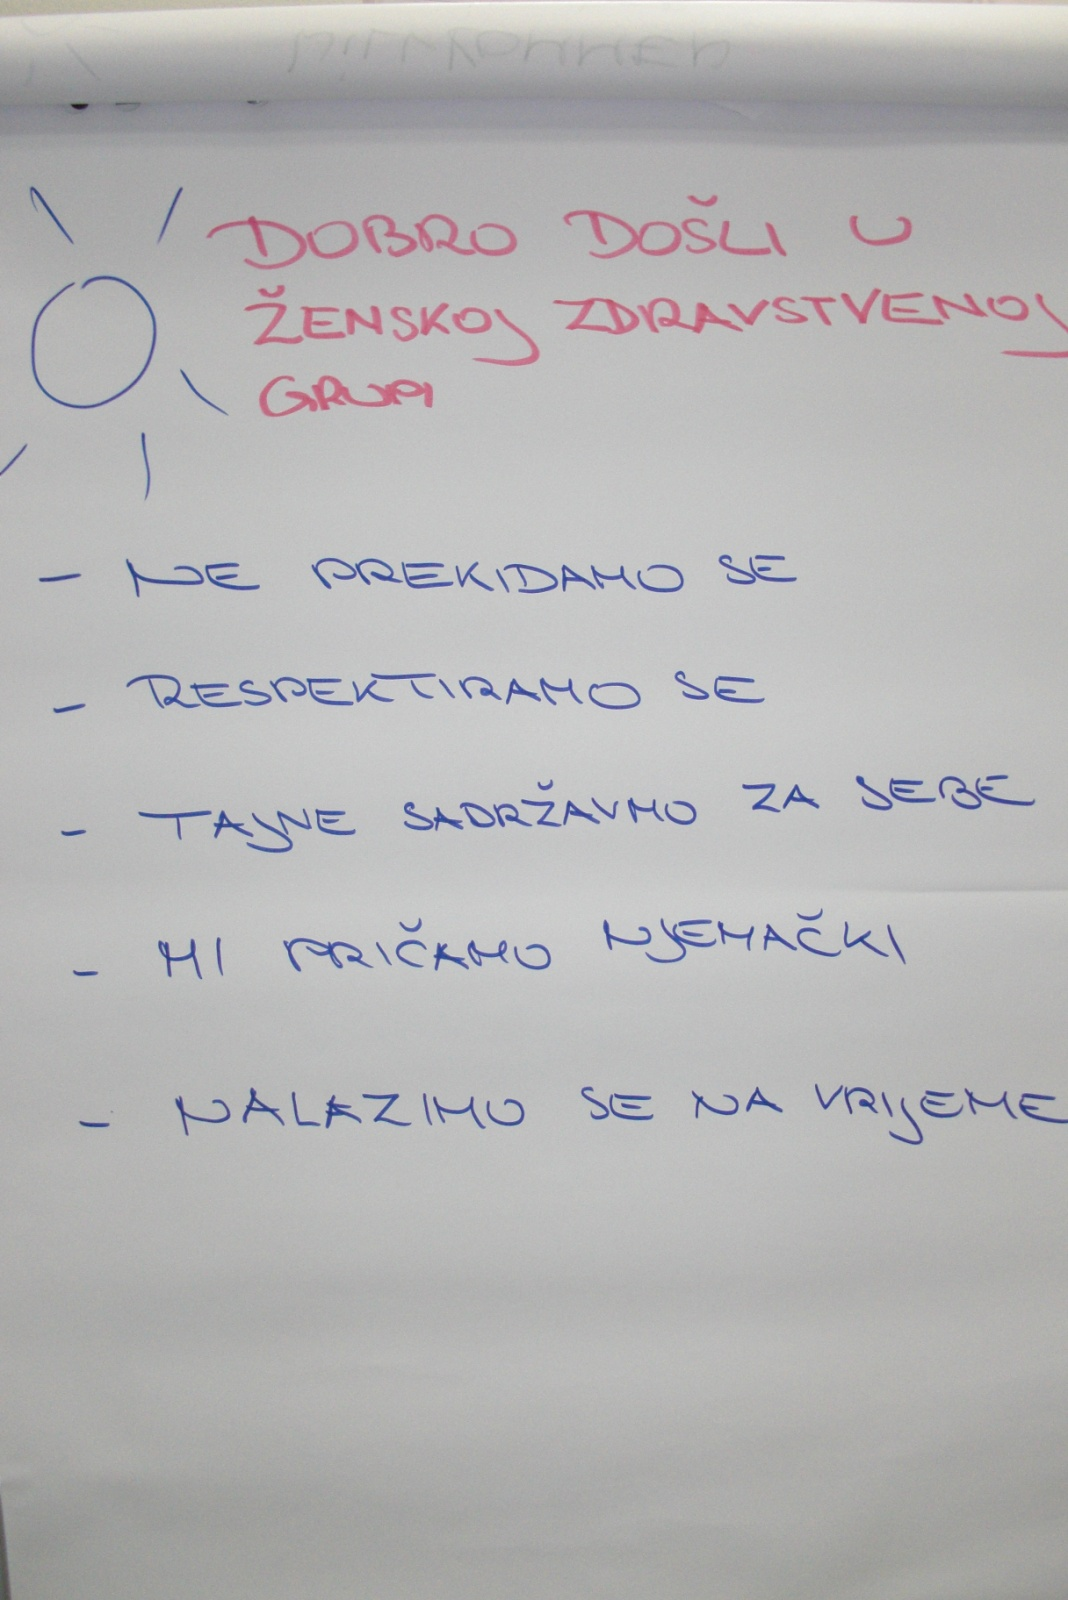 DOBRO DOŠLI U
ŽENSKOJ ZDRAVSTVENOJ
GRUPI
- NE PREKIDAMO SE
- RESPEKTIRAMO SE
- TAJNE SADRŽAVMO ZA SEBE
- MI PRIČAMO NJEMAČKI
- NALAZIMO SE NA VRIJEME